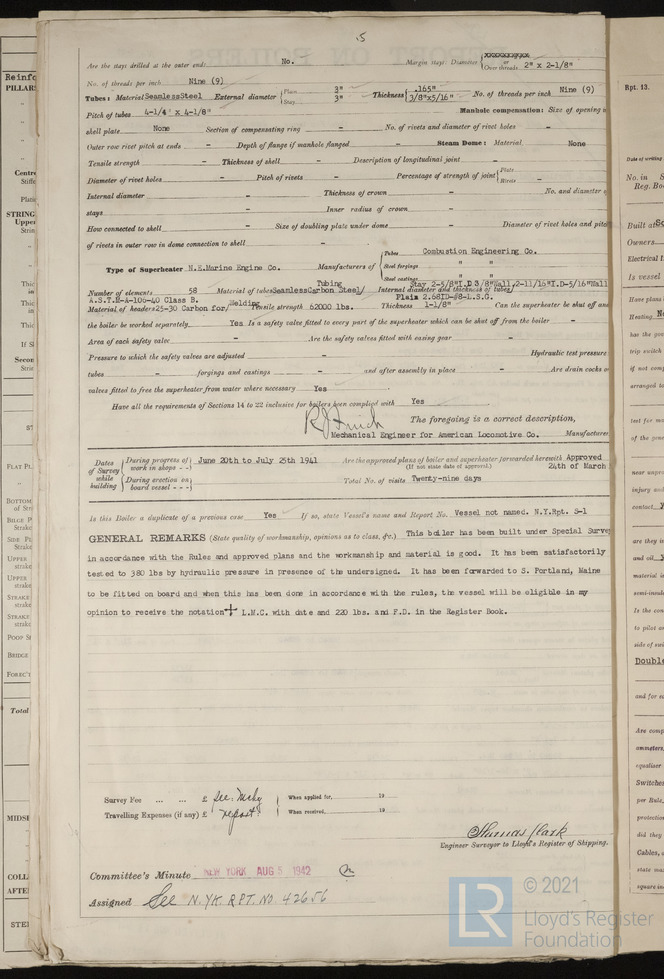 5
Are the stays drilled at the outer ends No. Margin stays Diameter or Over threads 2" x 2-1/8"
No. of threads per inch Nine (9)
Tubes: Material Seamless Steel External diameter Plain 3" Stay 3" Thickness .165" 3/8"x5/16" No. of threads per inch Nine (9)
Pitch of tubes 4-1/4" x 4-1/8" Manhole compensation: Size of opening in
shell plate None Section of compensating ring - No. of rivets and diameter of rivet holes -
Outer row rivet pitch at ends - Depth of flange if manhole flanged - Steam Dome: Material None
Tensile strength - Thickness of shell - Description of longitudinal joint -
Diameter of rivet holes - Pitch of rivets - Percentage of strength of joint Plate Rivets -
Internal diameter - Thickness of crown - No. and diameter o
stays - Inner radius of crown -
How connected to shell - Size of doubling plate under dome - Diameter of rivet holes and pitch
of rivets in outer row in dome connection to shell -
Type of Superheater N.E.Marine Engine Co. Manufacturers of Tubes Combustion Engineering Co.
Steel forgings " "
Steel castings " "
Number of elements 58 Material of tubes Seamless Carbon Steel/ Tubing Internal diameter and thickness of tubes Stay 2-5/8"I.D 3/8"Wall,2-11/16"I.D-5/16"Wall
Plain 2.68ID-#8-L.S.G.
A.S.T.M-A-106-40 Class B.
Material of headers 25-30 Carbon for/ Welding Tensile strength 62000 lbs. Thickness 1-1/8" Can the superheater be shut off and
the boiler be worked separately Yes Is a safety valve fitted to every part of the superheater which can be shut off from the boiler -
Area of each safety valve - Are the safety valves fitted with easing gear -
Pressure to which the safety valves are adjusted - Hydraulic test pressure
tubes - forgings and castings - and after assembly in place - Are drain cocks o
valves fitted to free the superheater from water where necessary Yes
Have all the requirements of Sections 14 to 22 inclusive for boilers been complied with Yes
The foregoing is a correct description,
Mechanical Engineer for American Locomotive Co. Manufacturer
Dates of Survey while building During progress of work in shops - - June 20th to July 25th 1941 Are the approved plans of boiler and superheater forwarded herewith Approved
(If not state date of approval.) 24th of March
During erection on board vessel - - - Total No. of visits Twenty-nine days
Is this Boiler a duplicate of a previous case Yes If so, state Vessel's name and Report No. Vessel not named. N.Y.Rpt. S-1
GENERAL REMARKS (State quality of workmanship, opinions as to class, &c.) This boiler has been built under Special Surve
in accordance with the Rules and approved plans and the workmanship and material is good. It has been satisfactorily
tested to 380 lbs by hydraulic pressure in presence of the undersigned. It has been forwarded to S. Portland, Maine
to be fitted on board and when this has been done in accordance with the rules, the vessel will be eligible in my
opinion to receive the notation + L.M.C. with date and 220 lbs. and F.D. in the Register Book.
Survey Fee ... ... £ See: Mchy When applied for, 19
Travelling Expenses (if any) £ report. When received, 19
Thomas Clark
Engineer Surveyor to Lloyd's Register of Shipping.
Committee's Minute NEW YORK AUG 5 1942
Assigned See N.YK. RPT. NO. 42656
© 2021
LR Lloyd's Register
Foundation
Reinfo
PILLARS
Centre
STRING
Upper
Total
MIDSH
COLL
AFTE
Rpt. 13.
Date of writing
No. in
Reg. Bo
Built at
Owners
Electrical I
Is vessel
Have plans
Heating
Double
Switches
Cables,